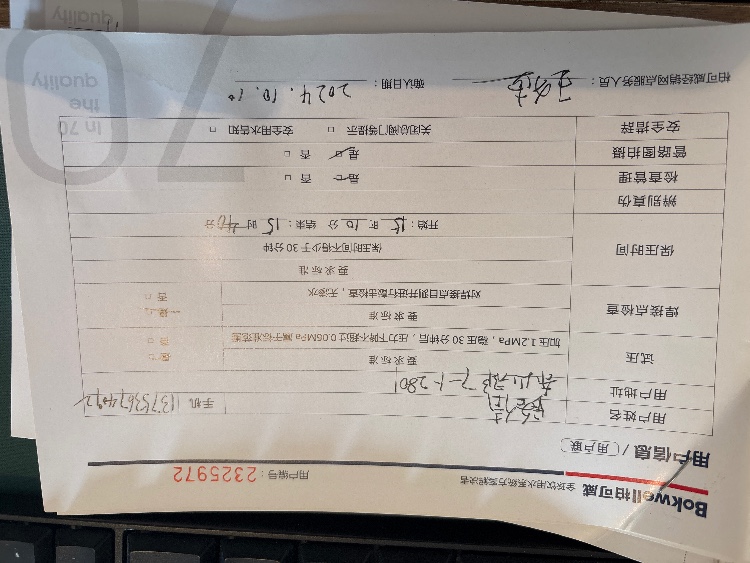 Bokwell柏可威 全球饮用水系统方案解决者
用户编号：2325972
用户信息 / 用户联
用户姓名
手机
用户地址 7-1-2801
试压
要求标准
加压1.2MPa，稳压30分钟后，压力下降不超过0.05MPa属于标准范围
是□
否□
焊接点检查
要求标准
对焊接点目测并进行敲击检查，无渗水
是□
否□
保压时间
要求标准
保压时间不得少于30分钟
开始：15时10分 结束：15时40分
辨别真伪
检查管理 是□ 否□
管路图拍摄 是□ 否□
安全措辞 关闭总阀门等提示 □ 安全用水告知 □
柏可威经销网点服务人员：
确认日期：2024.10.10
In 70
the
quality
70
quality